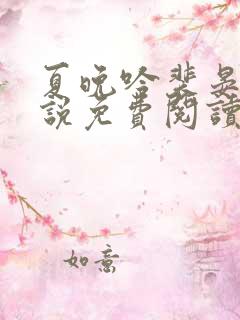 夏晚吟裴晃
說免費閱讀
如意